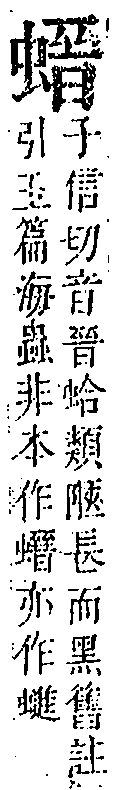 子信切音晉蛤類陿長而黑舊註
引玉篇海蟲非本作亦作